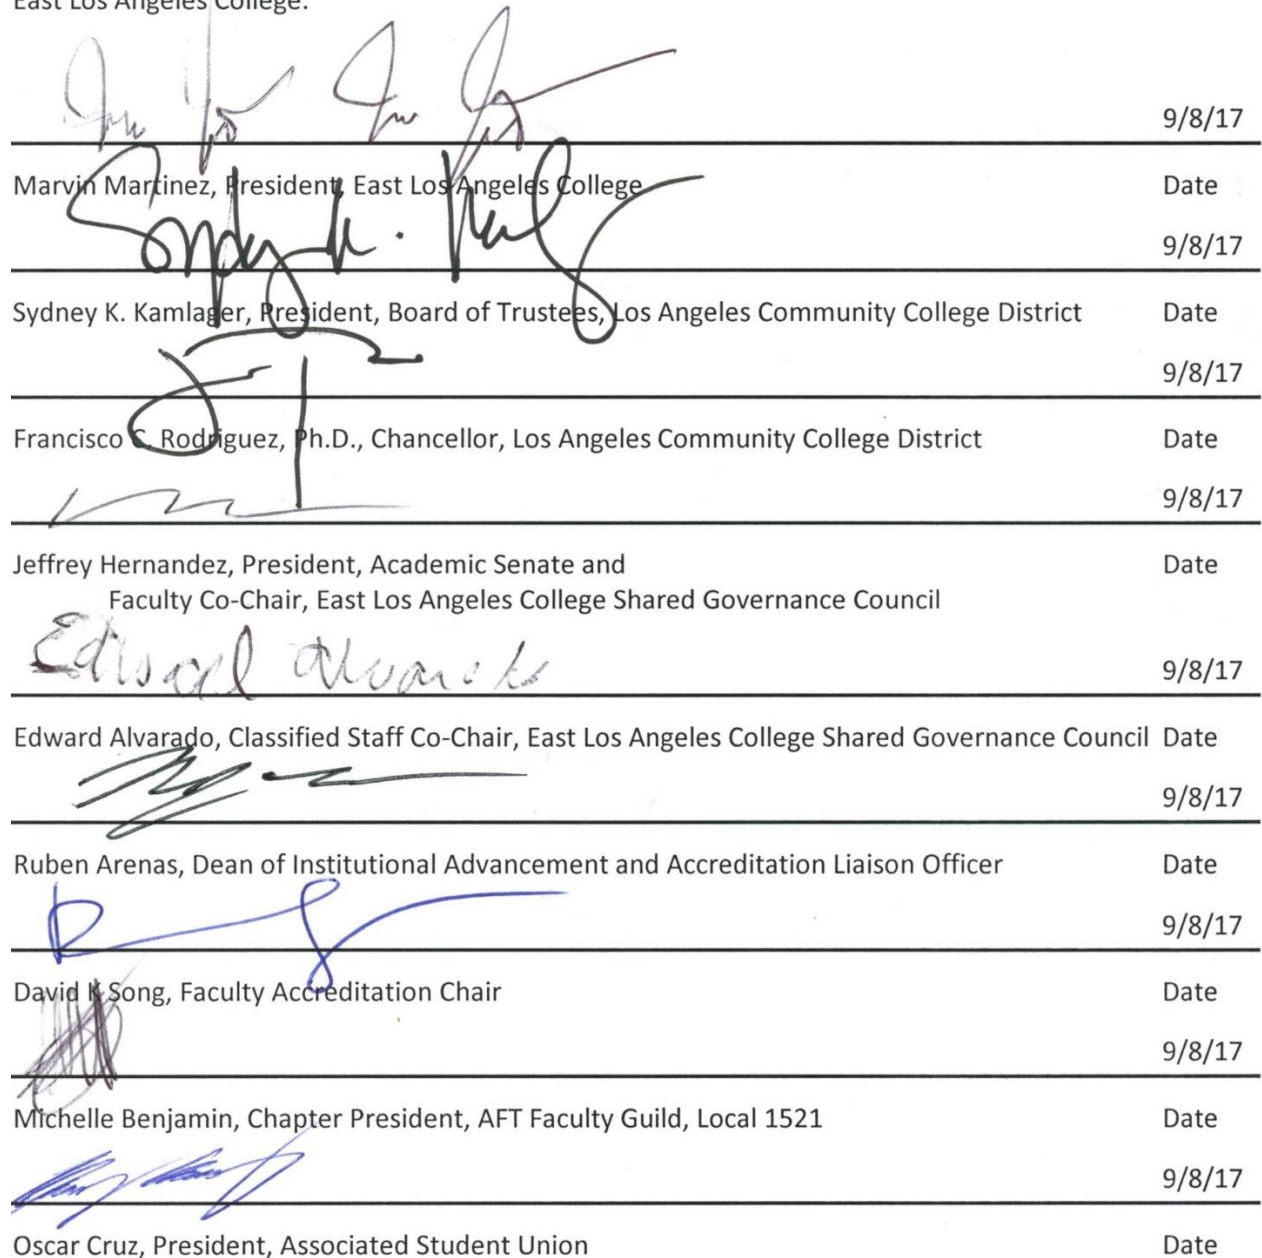 East Los Angeles College.
9/8/17
Marvin Martinez, President, East Los Angeles College Date
9/8/17
Sydney K. Kamlager, President, Board of Trustees, Los Angeles Community College District Date
9/8/17
Francisco C. Rodriguez, Ph.D., Chancellor, Los Angeles Community College District Date
9/8/17
Jeffrey Hernandez, President, Academic Senate and Date
Faculty Co-Chair, East Los Angeles College Shared Governance Council
Edward 9/8/17
Edward Alvarado, Classified Staff Co-Chair, East Los Angeles College Shared Governance Council Date
9/8/17
Ruben Arenas, Dean of Institutional Advancement and Accreditation Liaison Officer Date
9/8/17
David K Song, Faculty Accreditation Chair Date
9/8/17
Michelle Benjamin, Chapter President, AFT Faculty Guild, Local 1521 Date
9/8/17
Oscar Cruz, President, Associated Student Union Date